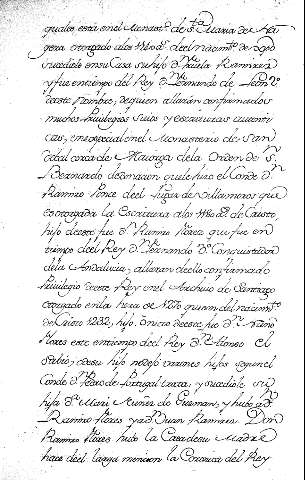 qual esta en el Monast.º de S.ta Maria de No
gera otorgado a los 1180 a.s del nacim.to de Xpo
sucediole en su Casa su hijo D.n Ramirez
y fue en tiempo del Rey D.n Fernando de Leon 2.º
de este Nombre, de quien allarán confirmados
muchos Privilegios suios y escrituras
en especial en el Monasterio de San
cerca de Maiorga de la Orden de S.n
Bernardo donacion que le hizo el Conde D.n
Ramiro Ponce del lugar de Villameros que
es otorgada la Escritura a los 1180 a.s de Cristo,
hijo de este fue D.n Ramiro Florez que fue en
tiempo del Rey D.n Fernando 3.º Conquistador
de la Andalucia, allaran de ello confirmado
Privilegio de este Rey en el Archivo de Santiago
otorgado en la hera de 1270 que son del nacim.to
de Cristo 1232, hijo de este fue D.n Nuño
Flores este en tiempo del Rey D.n Alonso el
sabio, de su hijo no dejó varones hijos segun el
Conde D.n Pedro de Portugal trata, y sucediole su
hija D.ª Maria Nuñez de Guzman, y hubo a D.n
Ramiro Flores y a D.n Juan Ramirez Don
Ramiro Flores hubo la Casa de su Madre
hace del larga mencion la Coronica del Rey